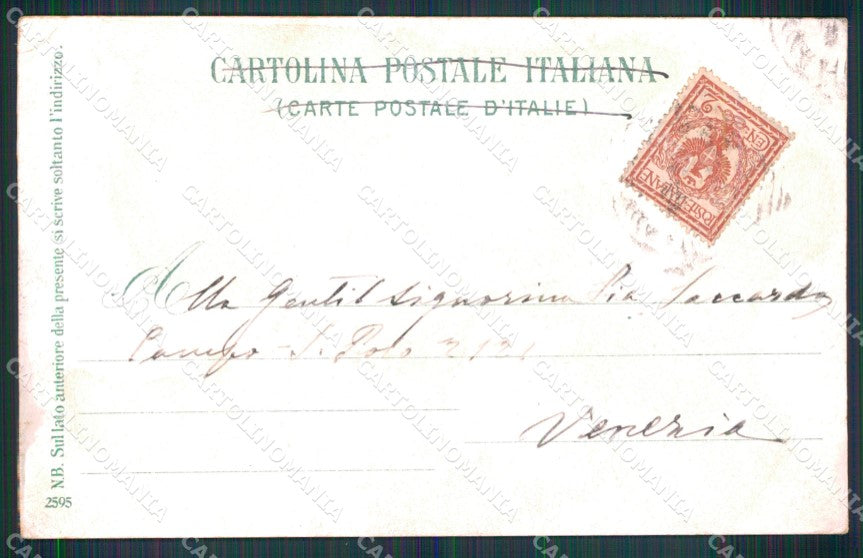 CARTOLINA POSTALE ITALIANA
(CARTE POSTALE D'ITALIE)
POSTE ITALIANE
Alla Gentil Signorina Pia Saccardo
Campo S. Polo 2121
Venezia
N.B. Sul lato anteriore della presente si scrive soltanto l'indirizzo.
2595
CARTOLINOMANIA